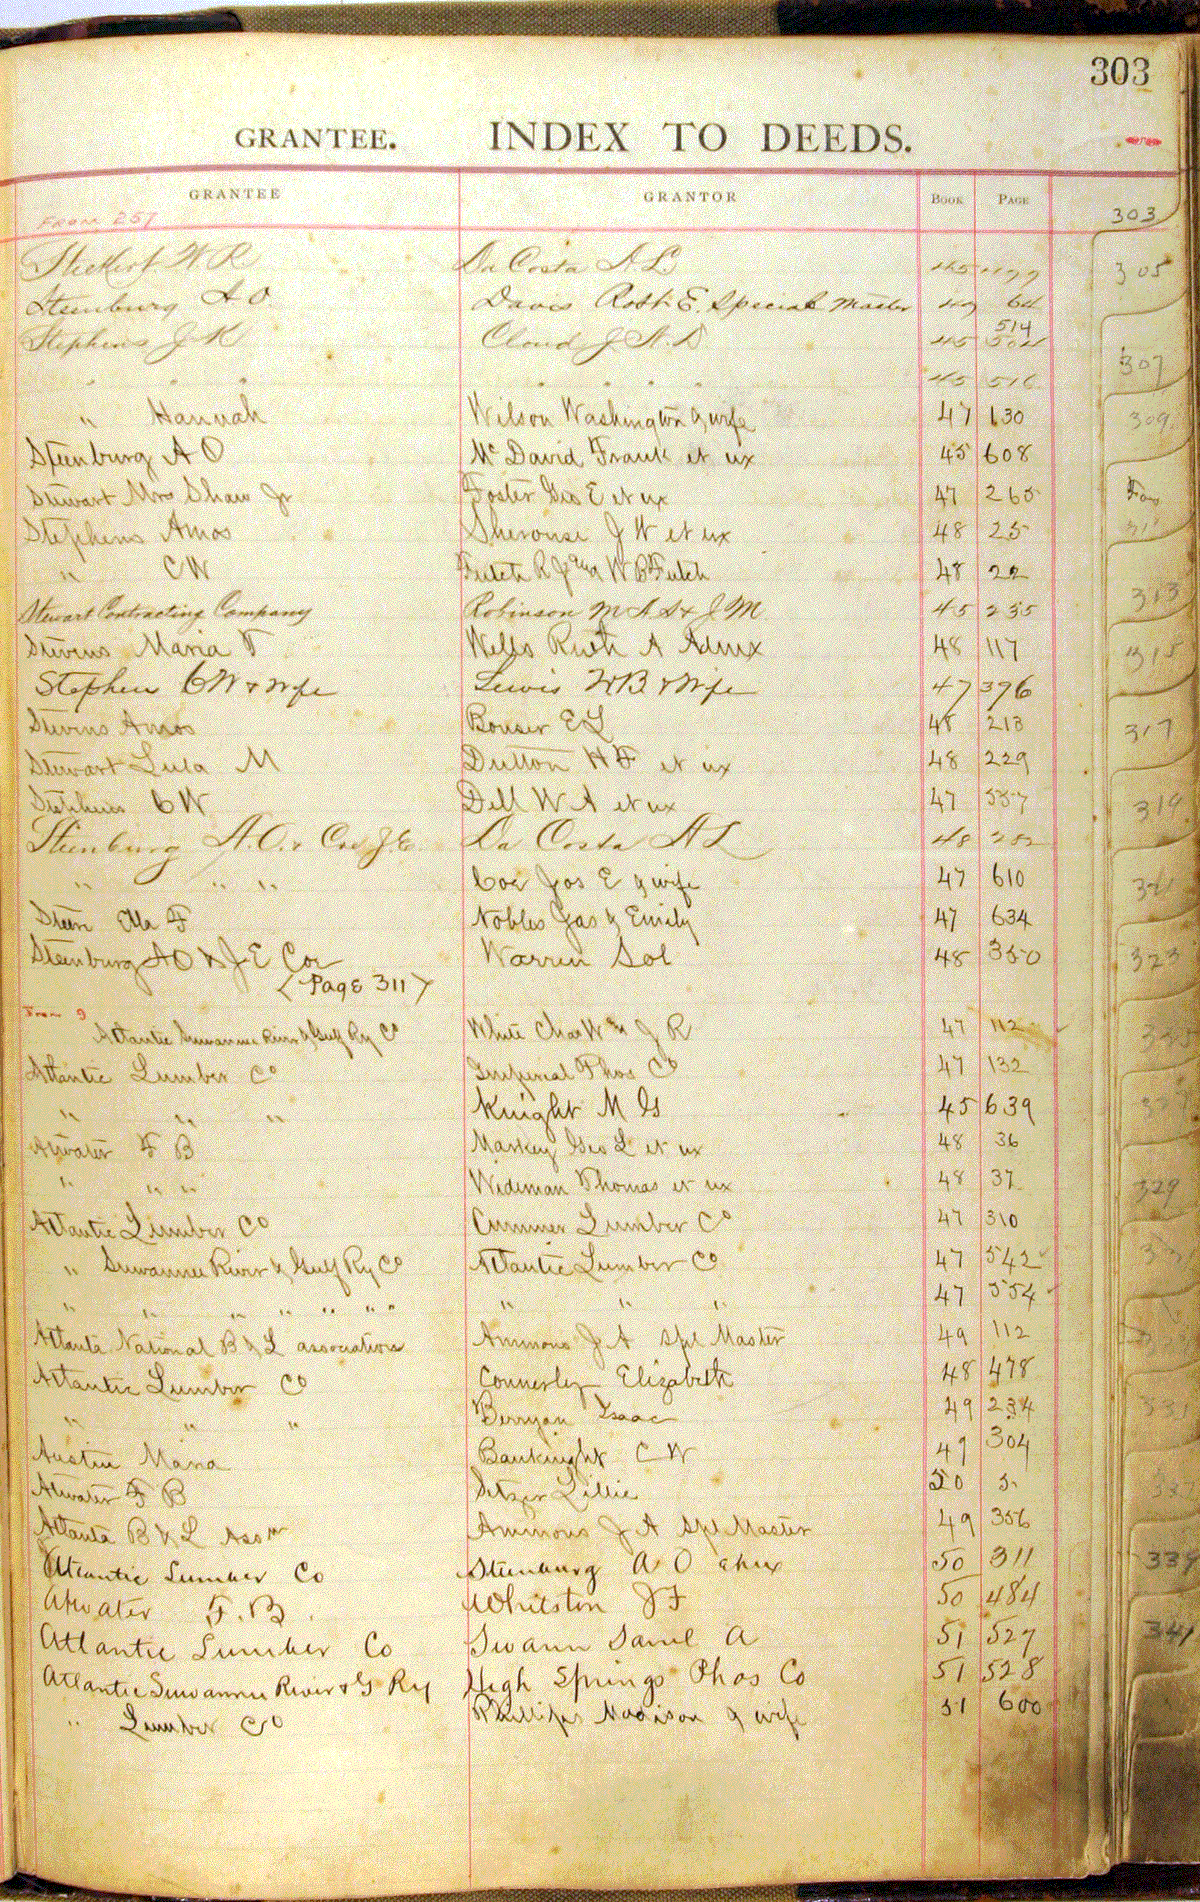 303
GRANTEE. INDEX TO DEEDS.
GRANTEE GRANTOR BOOK PAGE
FROM 251
303
W. R. Da Costa A. L. 45
Steenburg A O Davis Robt. E. Special Master 49 64
514
Stephens J. K. Cloud J. A. D. 45
" " " " " " " 45 516
" Hannah Wilson Washington & wife 47 130
Steenburg A O Mc David Frank et ux 45 608
Stewart Mrs Shaw Jr Foster Geo E et ux 47 265
Stephens Amos Sherouse J W et ux 48 25
" C W Futch R J & W B Futch 48 22
Stewart Contracting Company Robinson M A & J M 45 235
Stevens Maria F Wells Ruth A Admx 48 117
Stephen C W & wife Lewis W B & wife 47 396
Stevens Amos Bouser E L 48 213
Stewart Lula M Dutton H F et ux 48 229
Stephens C W Dell W A et ux 47 557
Steenburg A. O. & Coe J. E. Da Costa A L 48 252
" " " Coe Jos E & wife 47 610
Steen Ella F Nobles Gas & Emily 47 634
Steenburg A O & J E Coe Warren Sol 48 350
(Page 311)
From 9
Atlantic Suwannee River & Gulf Ry Co White Chas W & J R 47 112
Atlantic Lumber Co Imperial Phos Co 47 132
" " " Knight M G 45 639
Atwater F B Markey Geo L et ux 48 36
" " " Wideman Thomas et ux 48 37
Atlantic Lumber Co Cummer Lumber Co 47 310
" Suwannee River & Gulf Ry Co Atlantic Lumber Co 47 542
" " " " " " " " " " 47 554
Atlanta National B & L association Ammons J A Spl Master 49 112
Atlantic Lumber Co Connerley Elizabeth 48 478
" " " Berryan Isaac 49 234
Austin Maria Bauknight C W 49 304
Atwater F B Setzer Lillie 50 5
Atlanta B & L Assn Ammons J A Spl Master 49 356
Atlantic Lumber Co Steenburg A O et ux 50 311
Atwater F. B. Whitston J F 50 484
Atlantic Lumber Co Swann Saml A 51 527
Atlantic Suwannee River & G Ry High Springs Phos Co 51 528
" Lumber Co Phillips Madison & wife 51 600
305
307
309
313
315
317
319
321
323
329
339
341